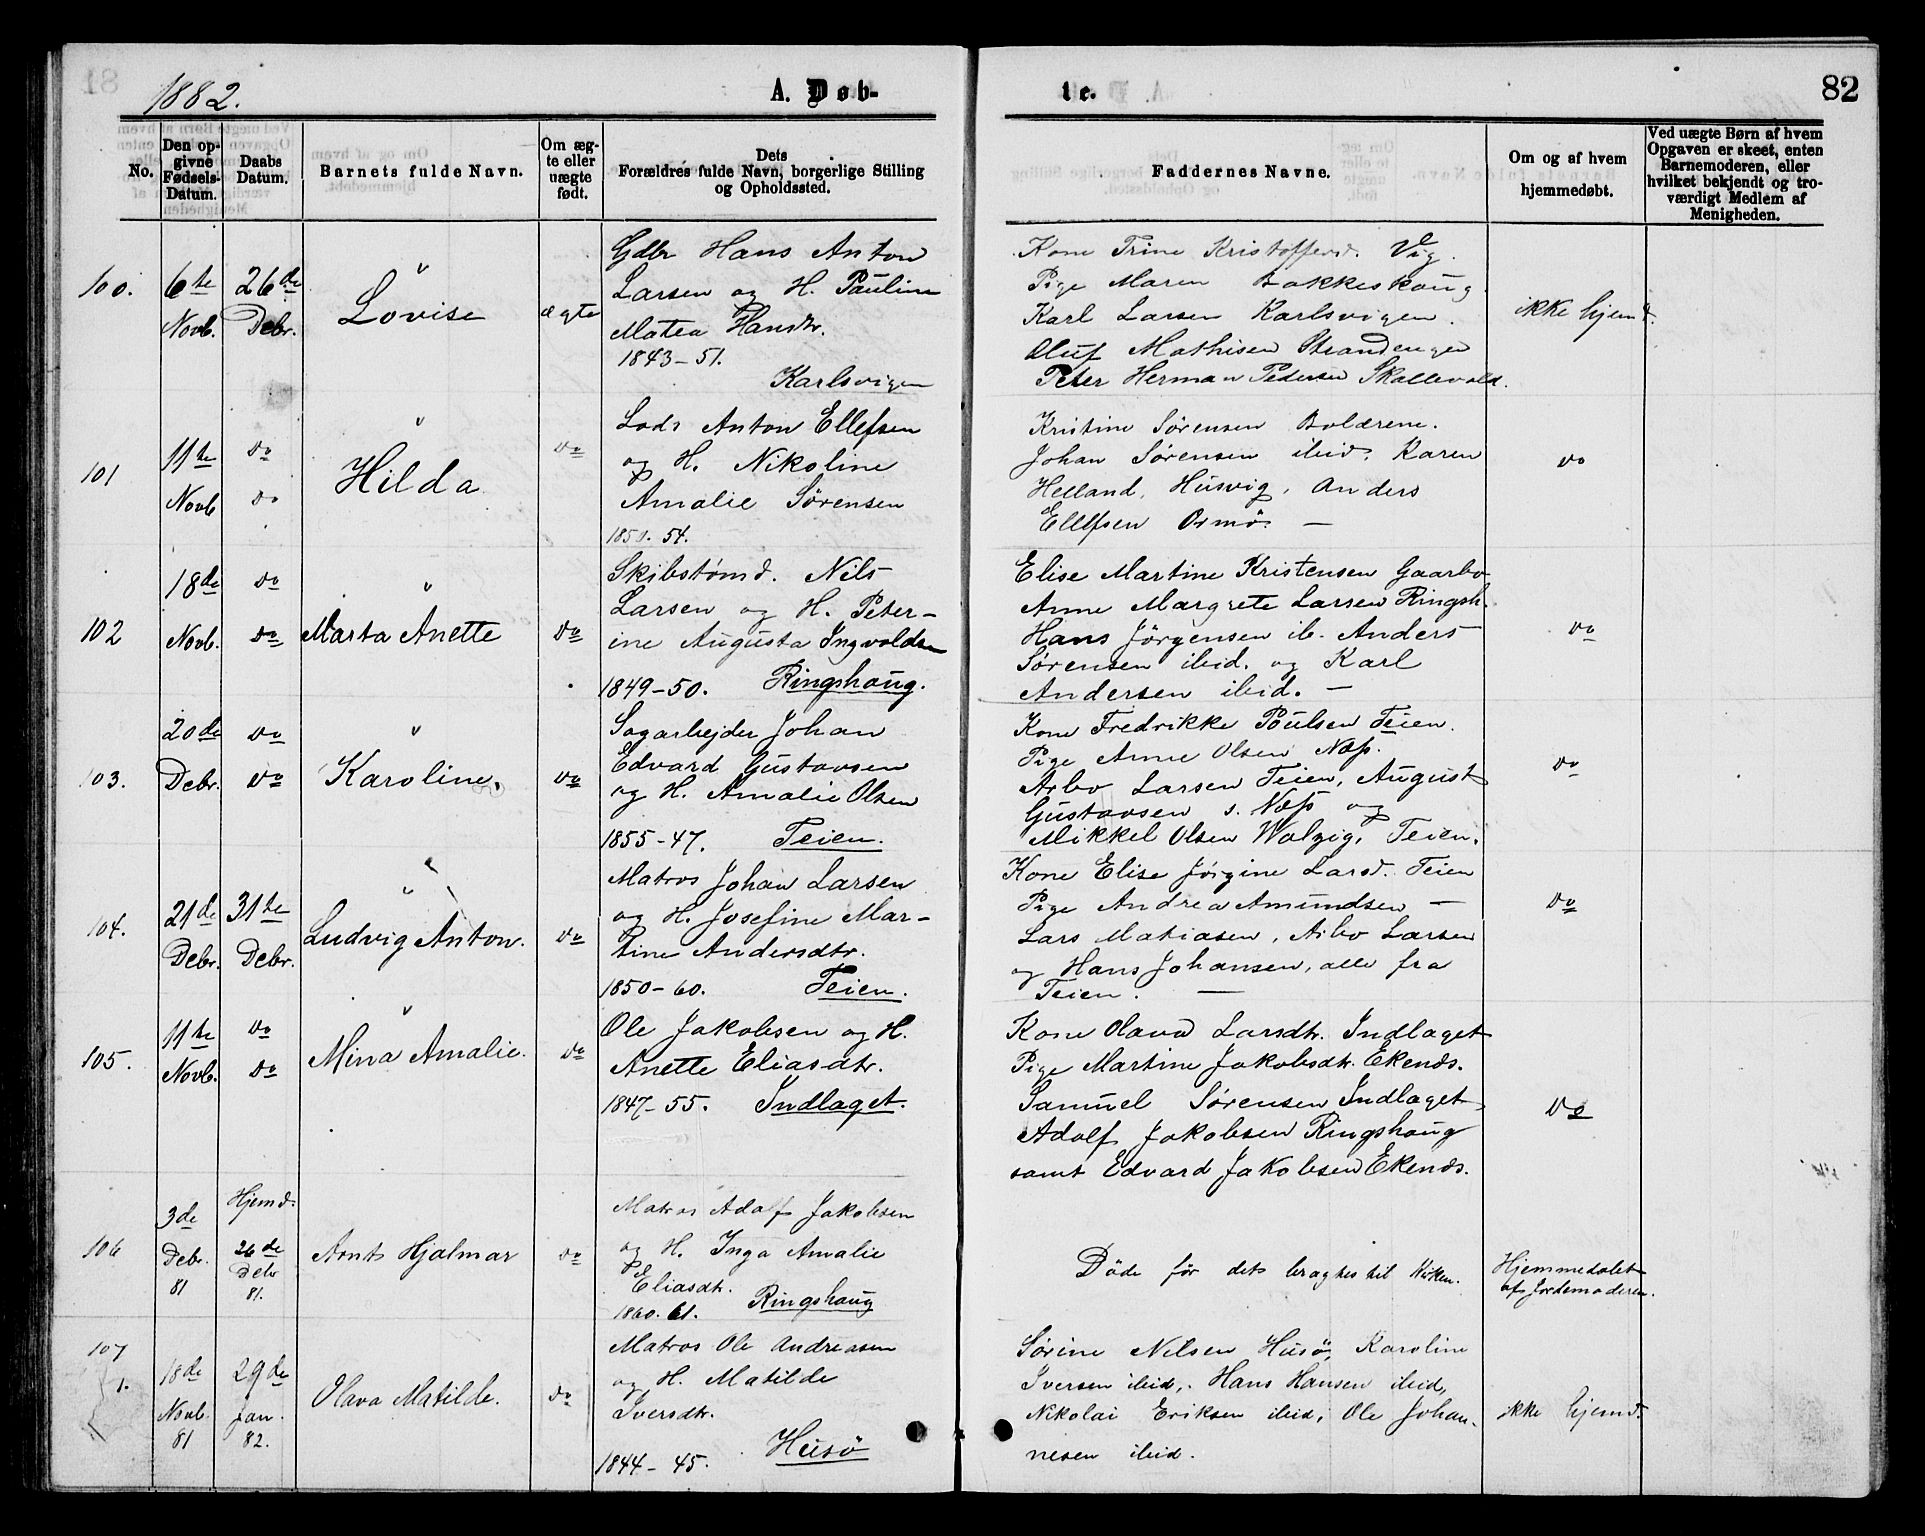 1882.
A. Døb-
te.
82
No.
Den op-
givne
Fødsels-
Datum.
Daabs
Datum.
Barnets fulde Navn.
Om æg-
te eller
uægte
født.
Dets
Forældres fulde Navn, borgerlige Stilling
og Opholdssted.
Faddernes Navne.
Om og af hvem
hjemmedøbt.
Ved uægte Børn af hvem
Opgaven er skeet, enten
Barnemoderen, eller
hvilket bekjendt og tro-
værdigt Medlem af
Menigheden.
100.
6te
Novb.
26de
Debr.
"
Lovise
ægte
Gdbr Hans Anton
Larsen og H. Pauline
Matea Hansdtr.
1843-51.
Karlsvigen
Kone Trine Kristoffersd. Vig.
Pige Maren Bakkeskoug.
Karl Larsen Karlsvigen.
Oluf Mathisen Strandengen
Peter Herman Pedersen Skallevold.
ikke hjemd.
101
11te
Novb
do
do
"
Hilda
do
Lods Anton Ellefsen
og H. Nikoline
Amalie Sørensen
1850. 54.
Kristine Sørensen Bolærene.
Johan Sørensen ibid. Karen
Helland, Husvig, Anders
Ellefsen Ormø. —
do
102
18de
Novb.
do
do
"
Marta Anette
do
Skibstømd. Nils
Larsen og H. Peter-
ine Augusta Ingvoldsen
1849-50. Ringshoug.
Elise Martine Kristensen Gaarbo
Anne Margrete Larsen Ringsh.
Hans Jörgensen ib. Anders
Sørensen ibid. og Karl
Andersen ibid. —
do
103.
20de
Debr.
do
do
"
Karoline.
do
Sagarbejder Johan
Edvard Gustavsen
og H. Amalie Olsen
1855-47. Teien.
Kone Fredrikke Poulsen Teien.
Pige Anne Olsen Næs.
Arbo Larsen Teien, August
Gustavsen s. Næs og
Mikkel Olsen Teien.
do
104.
21de
Debr.
31te
Debr.
"
Ludvig Anton.
do
Matros Johan Larsen
og H. Josefine Mar-
tine Andersdtr.
1850-60. Teien.
Kone Elise Jörgine Larsd. Teien
Pige Andrea Amundsen —
Lars Matiasen, Arbo Larsen
og Hans Johansen, alle fra
Teien. —
do
105.
11te
Novb.
do
do
"
Mina Amalie.
do
Ole Jakobsen og H.
Anette Eliasdtr.
1847-55. Indlaget.
Kone Olava Larsdtr. Indlaget
Pige Martine Jakobsdtr. Ekenæs.
Samuel Sørensen Indlaget,
Adolf Jakobsen Ringshoug
samt Edvard Jakobsen Ekenæs.
do
106
3de
Debr.
81
Hjemd.
26de
Debr
81.
Arnt Hjalmar
do
Matros Adolf Jakobsen
og H. Inga Amalie
Eliasdtr.
1860. 61. Ringshoug
Döde før det bragtes til Kirken.
Hjemmedøbt
af Jordemoderen.
107
1.
18de
Novb.
81
29de
Jan.
82.
Olava Matilde.
do
Matros Ole Andreasen
og H. Matilde
Iversdtr.
1844-45. Husö
Sørine Nilsen Husö, Karoline
Iversen ibid., Hans Hansen ibid,
Nikolai Eriksen ibid, Ole Johan-
nesen ibid.
ikke hjemd.